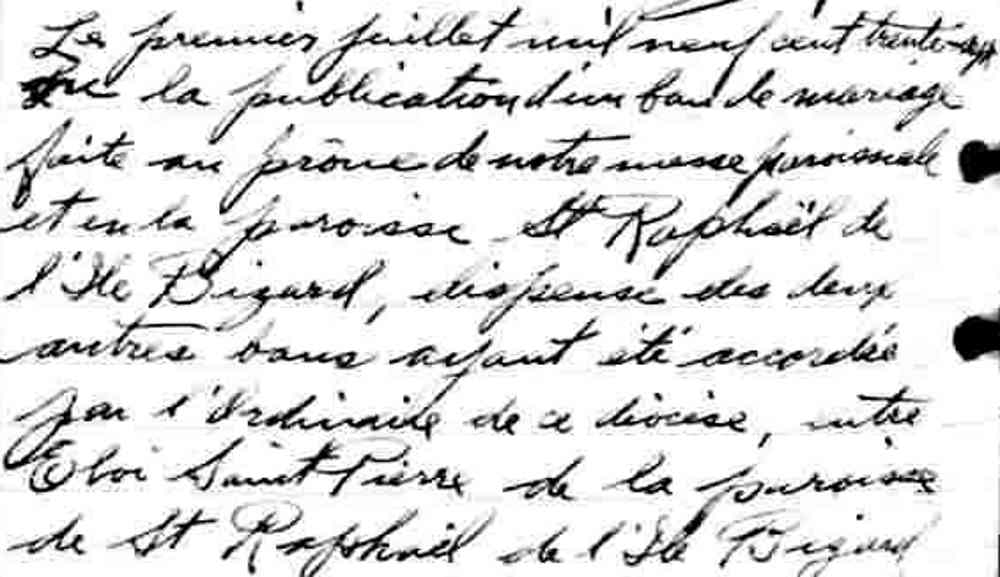 Le premier juillet mil neuf cent trente-sept
vu la publication d'un ban de mariage
faite au prône de notre messe paroissiale
et en la paroisse St Raphaël de
l'Ile Bizard, dispense des deux
autres bans ayant été accordée
par l'Ordinaire de ce diocèse, entre
Eloi Saint-Pierre de la paroisse
de St Raphaël de l'Ile Bizard